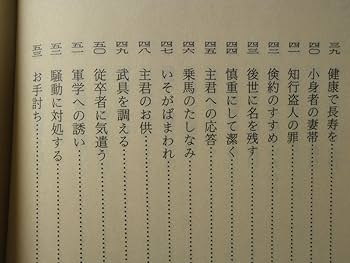 三九 健康で長寿を……………
四〇 小身者の妻帯……………
四一 知行盗人の罪……………
四二 倹約のすすめ……………
四三 後世に名を残す……………
四四 慎重にして潔く……………
四五 主君への応答……………
四六 乗馬のたしなみ……………
四七 いそがばまわれ……………
四八 主君のお供……………
四九 武具を調える……………
五〇 従卒者に気遣う……………
五一 軍学への誘い……………
五二 騒動に対処する……………
五三 お手討ち……………